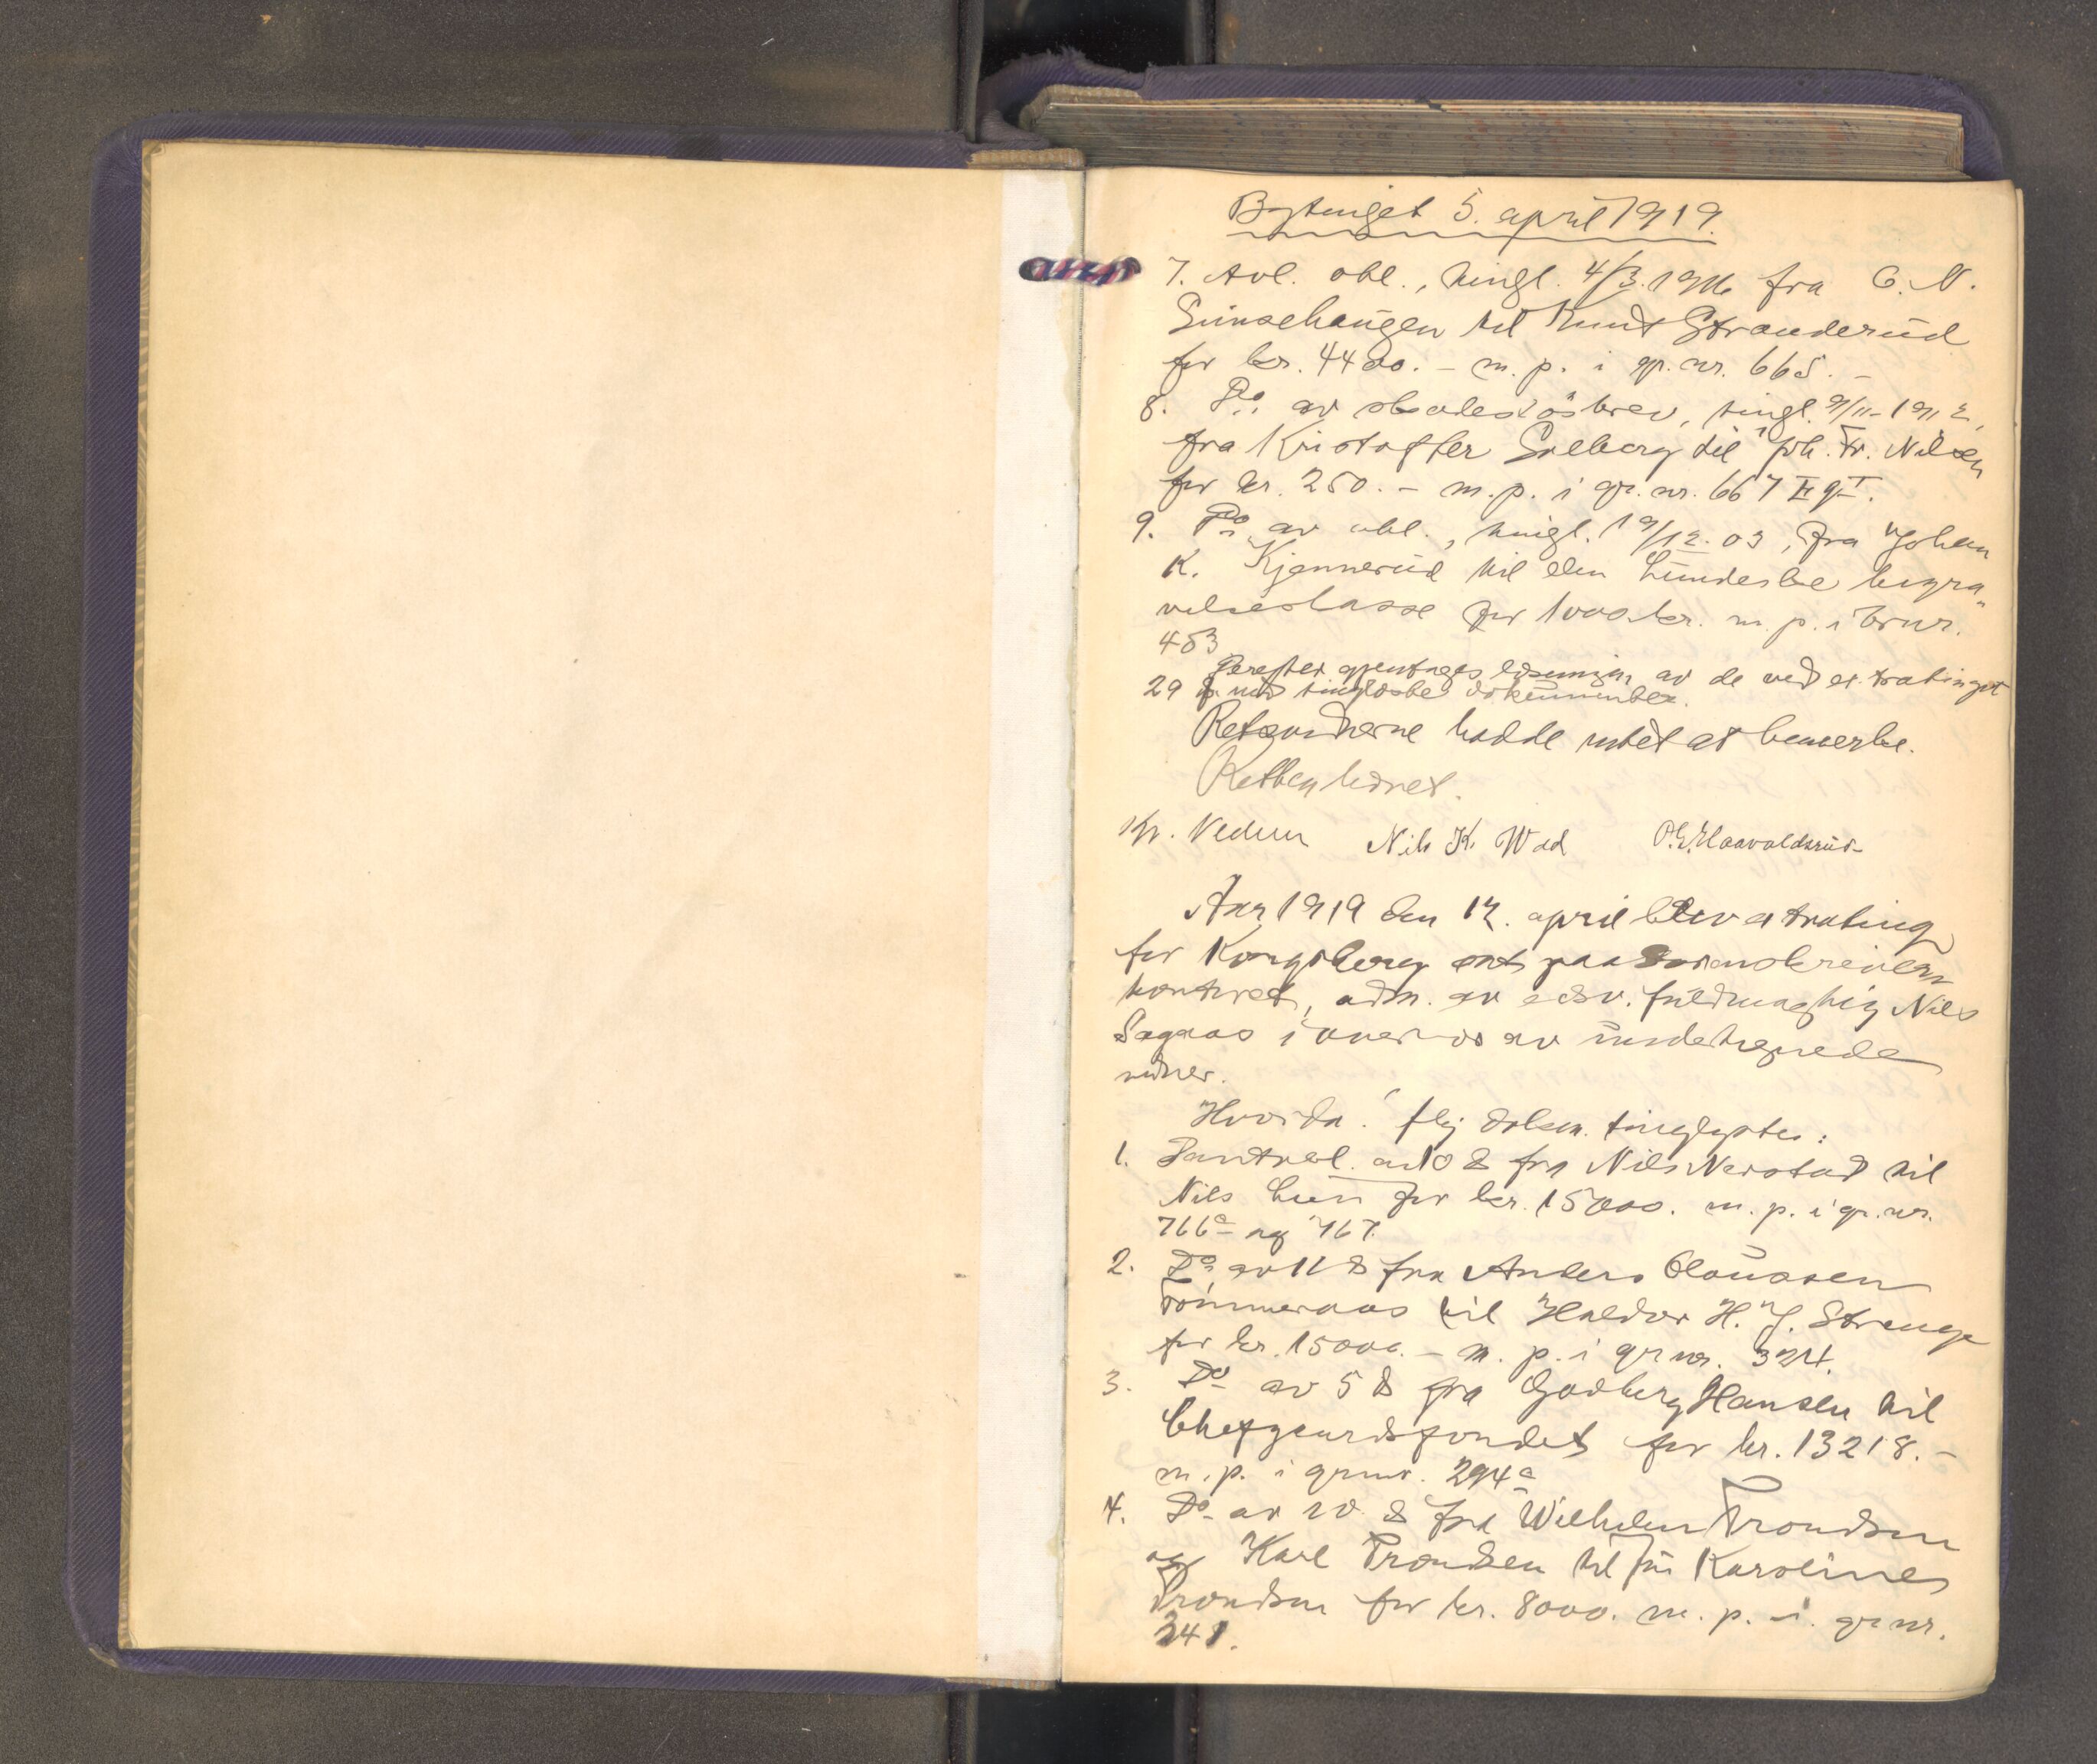 Bytinget 5. april 1919.
7. Avl. obl., tingl. 4/3. 1916 fra C. N.
Simsehaugen til Knut Stranderud
for kr. 4400. – m. p. i gr. nr. 665. –
8. Do. av skadesløsbrev, tingl. 9/11-1912,
fra Kristoffer Solberg til Joh. Fr. Nilsen
for kr. 250. – m. p. i gr. nr. 667 II
9. Do. av obl., tingl. 19/12.03, fra Johan
K. Kjennerud til den Lundeske begra„
velseskasse for 1000 kr. m. p. i brnr.
453
Derefter gjentages læsningen av de ved extratinget
29 tinglæste dokumenter.
Retsvidnerne hadde intet at bemerke.
Retten hævet.
Kr. Vedum Nils K. Wad O. G. Haavaldsrud
Aar 1919 den 12. april blev extrating
for Kongsberg sat paa Sorenskriveren
kontoret, adm. av edsv. fuldmægtig Nils
Sagaas i overvær av undertegnede
vidner.
Hvorda! flg dokum. tinglystes:
1. Pantobl. av 10 ds fra Nils Nerstad til
Nils Lun for kr. 15000. m. p. i gr. nr.
766a og 767.
2. Do. av 11 ds fra Anders Claussen
Tømmeraas til Haldor H. J. Strenge
for kr. 15000. – m. p. i gr nr. 324.
3. Do av 5 ds fra Godberg Hansen til
Chefgaardsfondet for kr. 13218. –
m. p. i grnr. 294a
4. Do av 10 ds fra Wilhelm Trondsen
og Karl Trondsen til fru Karoline
Trondsen for kr. 8000. m. p. i gr nr.
341.